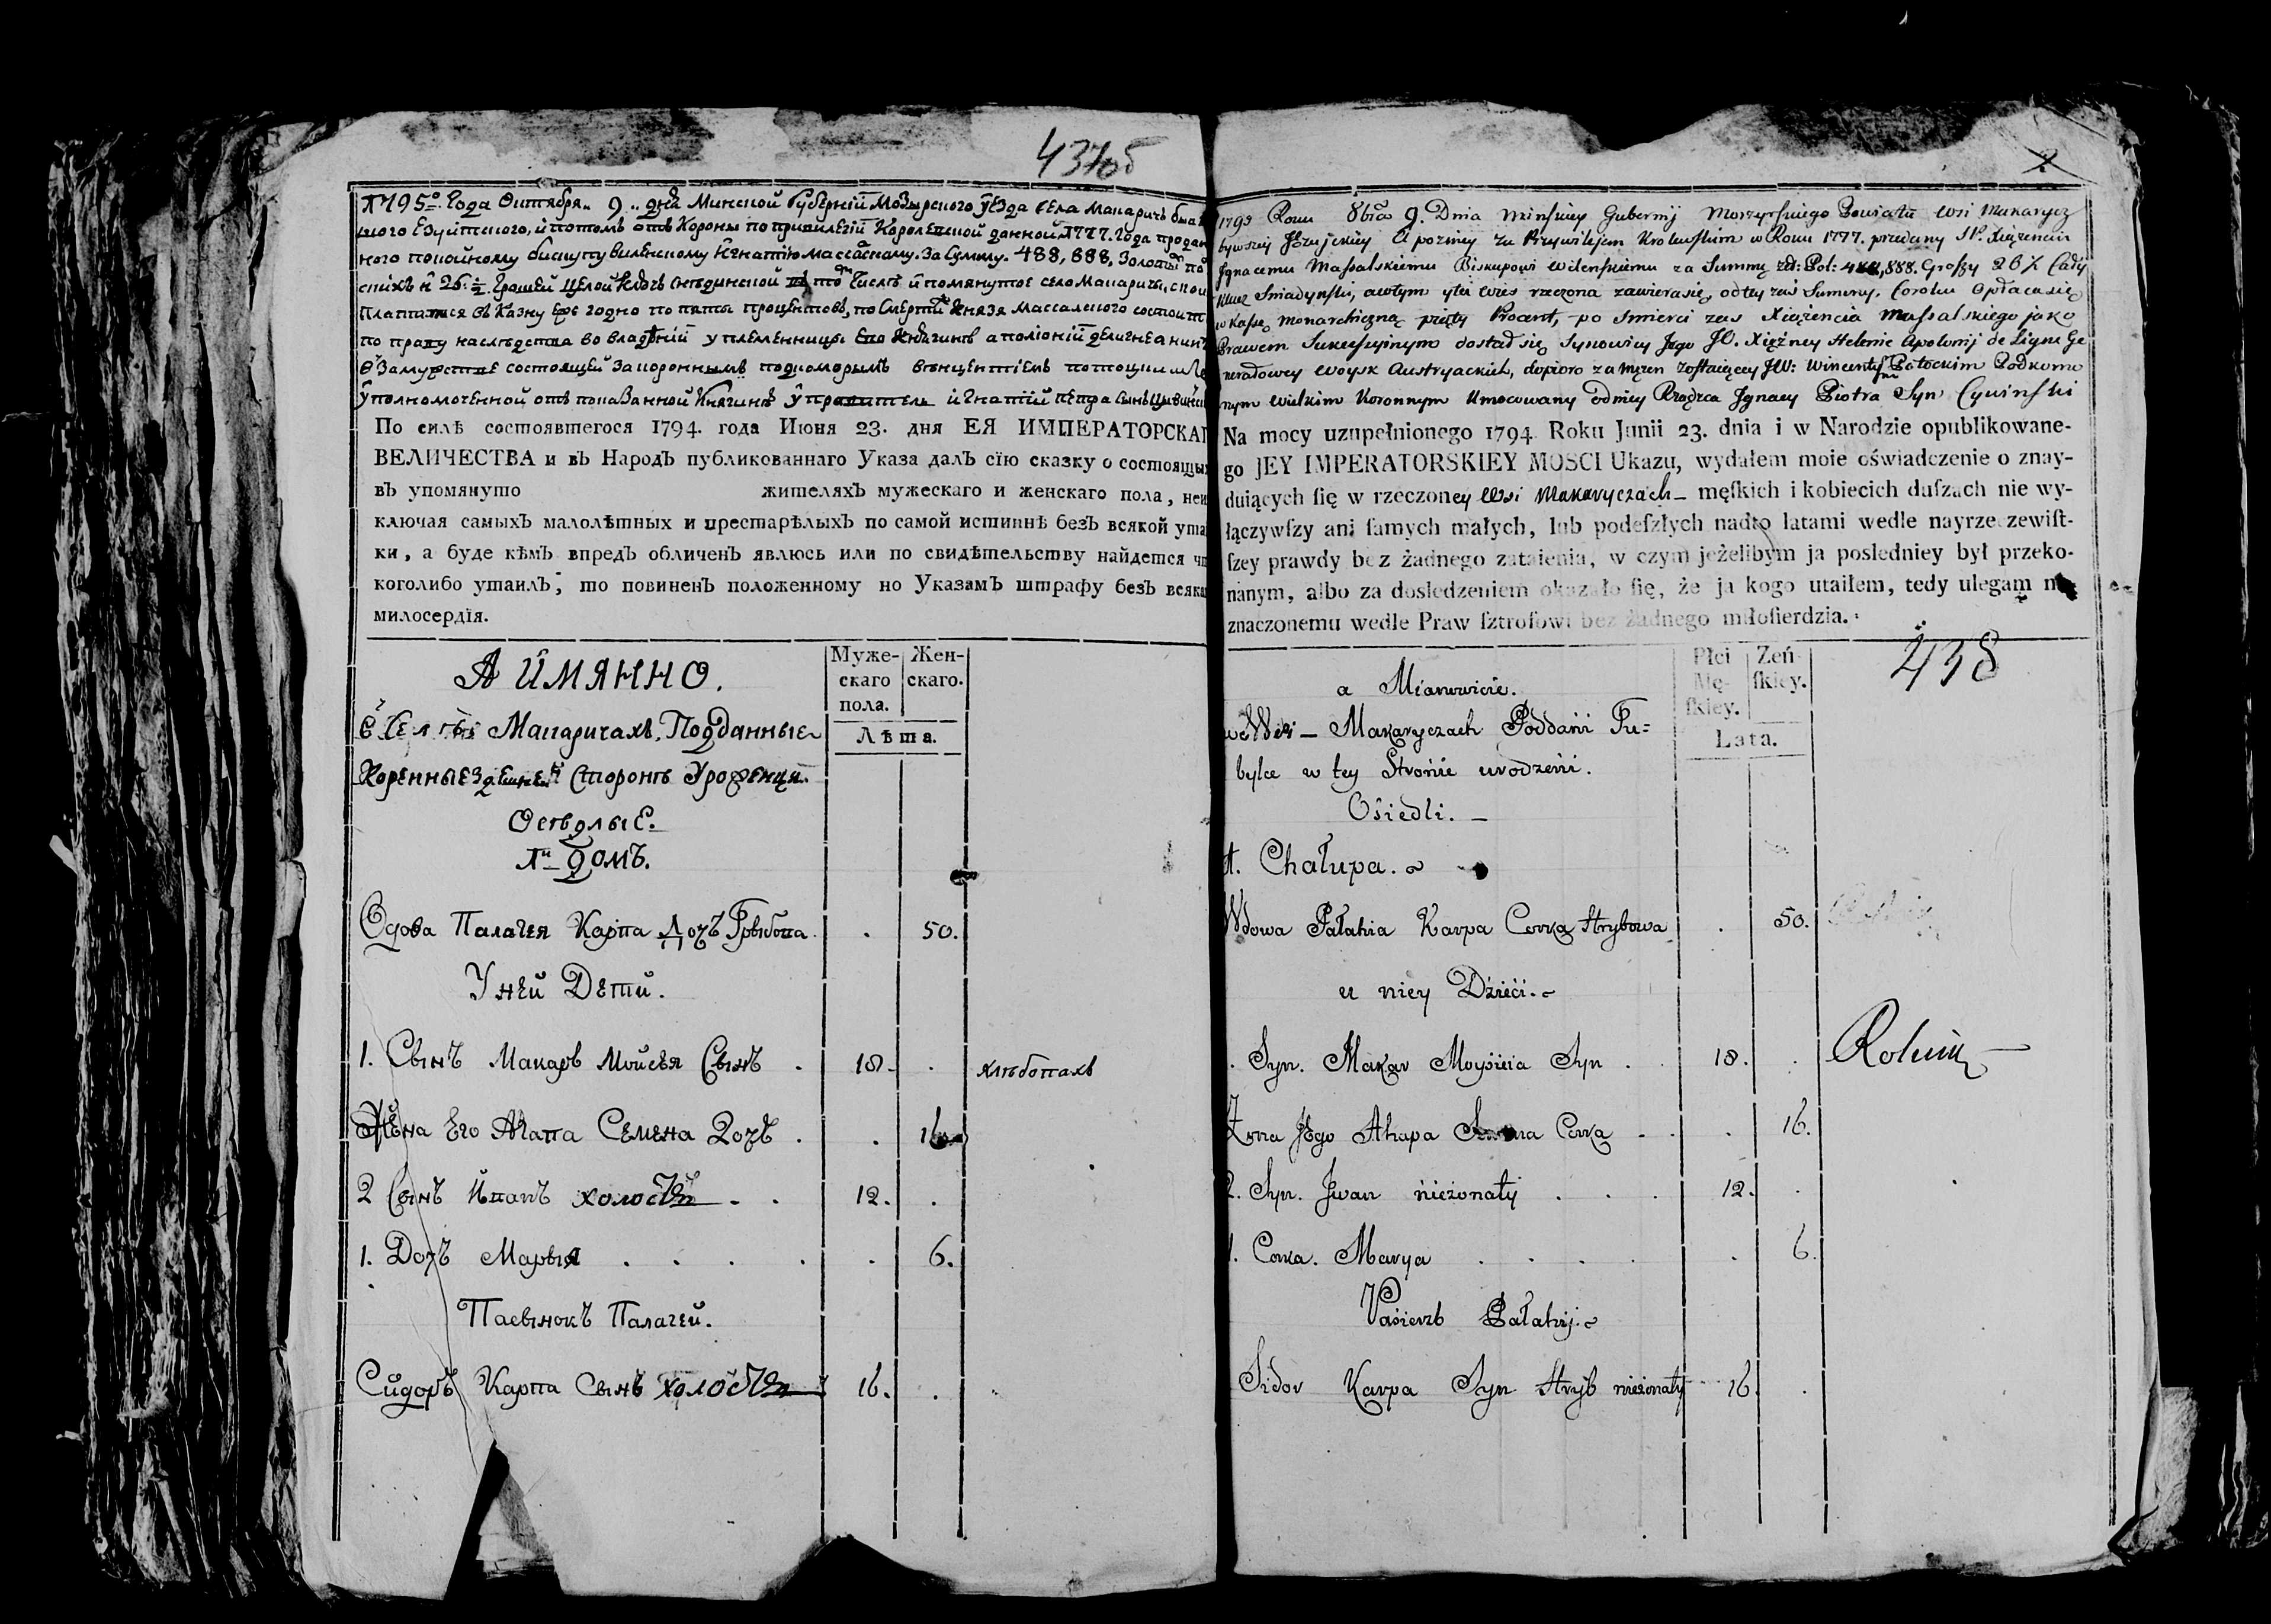 437об
1795го Года Октября 9 дня Минской Губернїи Мозырского уезда села Макаричъ быв
шого Езуитского, и потомъ отъ Короны по привилегїи Королевской данной 1777. года продан
ного покойному бискупу виленскому Игнатїю массалскому. За Сумму. 488,888, Золотых по
скихъ и 26 1/2 Грошей целой Ключъ Снядинской въ том Числе и помянутое село Макаричи, с кои
платится въ Казну Его годно по пяты процентовъ, по Смерти Князя Массалского состоит
по праву наследства во владенїи у племенницы Его Княгинь аполїонїи делигнеа нинѣ
въ Замужстве состоящей За коронным подкоморымъ вѣнцентїемъ потоцким
уполномоченной отъ показанной Княгинѣ управитель Игнатїй петра сынъ Цывинск
По силѣ состоявшегося 1794. года Июня 23. дня ЕЯ ИМПЕРАТОРСКАГ
ВЕЛИЧЕСТВА и въ Народъ публикованнаго Указа далъ сїю сказку о состоящых
въ упомянуто жителяхъ мужескаго и женскаго пола, неи
ключая самыхъ малолѣтных и престарѣлыхъ по самой истиннѣ безъ всякой ута
ки, а буде кѣмъ впредъ обличенъ явлюсь или по свидѣтельству найдется чт
коголибо утаилъ; то повиненъ положенному по Указамъ штрафу безъ всяка
милосердїя.
А ИМЯННО.
Муже-
скаго
пола.
Жен-
скаго.
Лѣта.
В Селѣ Макаричахъ, Подданные
Коренные Здешней Стороне Уроженци.
Оседлые.
1й Домъ.
Вдова Палагея Карпа Дочъ Грыбова . 50.
У ней Дети.
1. Сынъ Макаръ Мойсея Сынъ . 18. . хлебопахъ
Жена Его Агапа Семена Дочъ . . 16
2 Сынъ Иванъ холостъ . . 12. .
1. Дочъ Марья . . . . . 6.
Пасынокъ Палагеи.
Сидоръ Карпа Сынъ холостъ 16. .
2
1795 Roku 8bra 9. Dnia Minskiey Gubernij Mozyrskiego Powiatu Wsi Makarycz
bywszey Jezujckiey a pozniey za Przywilejem Krolewskim w Roku 1777. przedany Xiązenciu
Jgnacemu Massalskiemu Biskupowi Wilenskiemu za Summę zł: Pol: 488,888. Groszy 26 1/2 Cały
Klucz Sniadynski, a w tym y ta Wies rzeczona zawiera się, od tey zas Summy, Corolu opłaca się
w Kassę Monarchiczną piąty Procent, po smierci zas Xiązencia Massalskiego jako
Prawem Sukcessyinym dostał się Synowicy Jego JO. Xięzney Helenie Apolonij de Ligne Ge
nerałowey Woysk Austryackich, dopioro za męzem zostaiącey JW: Wincentym Potockim Podkomo
rnym Wielkim Koronnym Umocowany od niey Rządca Jgnacy Piotra Syn Cywinski
Na mocy uzupełnionego 1794 Roku Junii 23. dnia i w Narodzie opublikowane-
go JEY IMPERATORSKIEY MOSCI Ukazu, wydałem moie oświadczenie o znay-
duiących ſię w rzeczoney Wsi Makaryczach męſkich i kobiecich duſzach nie wy-
łączywſzy ani ſamych małych, lub podeſzłych nadto latami wedle nayrzeczewiſt-
ſzey prawdy bez żadnego zataienia, w czym jeżelibym ja posledniey był przeko-
nanym, albo za dosledzeniem okazało ſię, że ja kogo utaiłem, tedy ulegam na
znaczonemu wedle Praw ſztrofowi bez żadnego miłoſierdzia.
a Mianowicie.
Płci
Mę-
ſkiey.
Zeń-
ſkiey.
Lata.
438
we Wsi Makaryczach Poddani Tu=
bylce w tey Stronie urodzeni.
Osiedli.
1. Chałupa.
Wdowa Pałahia Karpa Corka Hrybowa . 50.
u niey Dzieci.
1. Syn. Makar Moysieia Syn . 18. . Rolnik
Zona Jego Ahapa Corka . . . 16.
2. Syn. Jwan nieżonaty . . . 12. .
1. Corka. Marya . . . . . 6.
Pasierzb Pałahij.
Sidor Karpa Syn Hryb nieżonaty 16 .